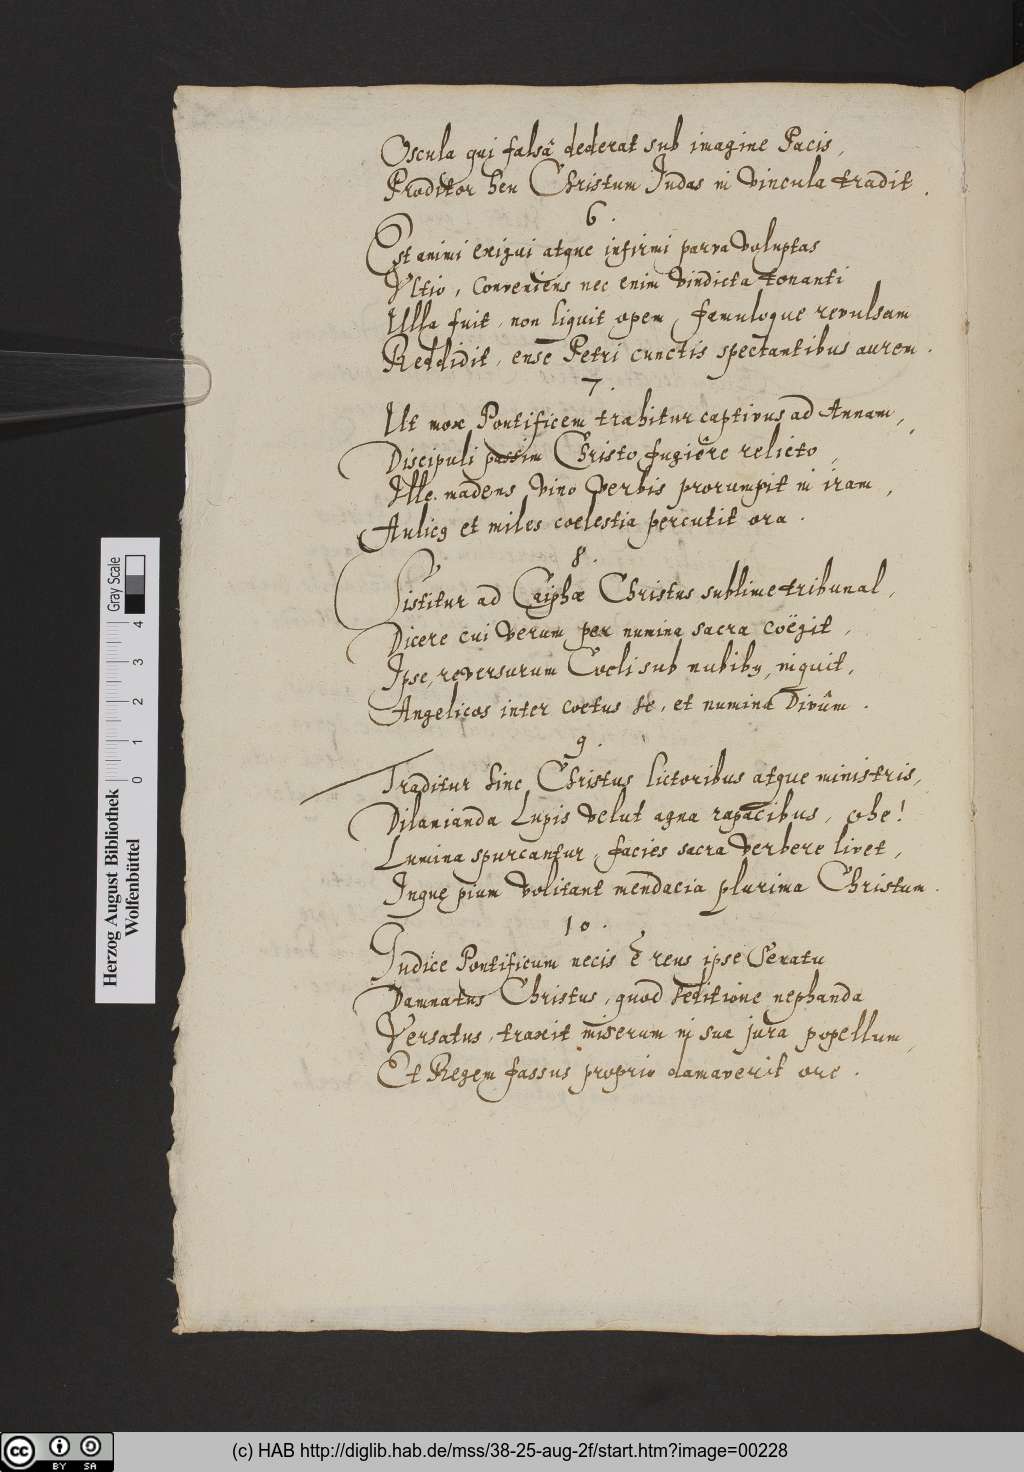 Oscula qui falsâ dederat sub imagine Pacis,
Proditor heu Christum Judas in vincula tradit.
6.
Est animi exigui atque infirmi parva voluptas
Ultio, conveniens nec enim vindicta tonanti
Ulla fuit, non liquit opem, famuloque revulsam
Reddidit, ense Petri cunctis spectantibus aurem.
7.
Ut mox Pontificem trahitur captivus ad Annam,
Discipuli passim Christo fugiêre relicto,
Ille madens vino verbis prorumpit in iram,
Aulicq et miles coelestia percutit ora.
8.
Sistitur ad Caiphæ Christus sublime tribunal,
Dicere cui verum per numina sacra coëgit,
Ipse, reversurum Coeli sub nubibq, inquit,
Angelicos inter coetus se, et numina Divûm.
9.
Traditur hinc Christus lictoribus atque ministris,
Dilanianda Lupis velut agna rapacibus, ohe!
Lumina spurcantur, facies sacra verbere livet,
Inque pium volitant mendacia plurima Christum.
10.
Judice Pontificum necis ê reus ipse Senatu
Damnatus Christus, quod seditione nephanda
Versatus, traxit miserum in sua jura popellum,
Et Regem fassus proprio clamaverit ore.
Gray Scale
0 1 2 3 4
Herzog August Bibliothek
Wolfenbüttel
cc BY SA
(c) HAB http://diglib.hab.de/mss/38-25-aug-2f/start.htm?image=00228